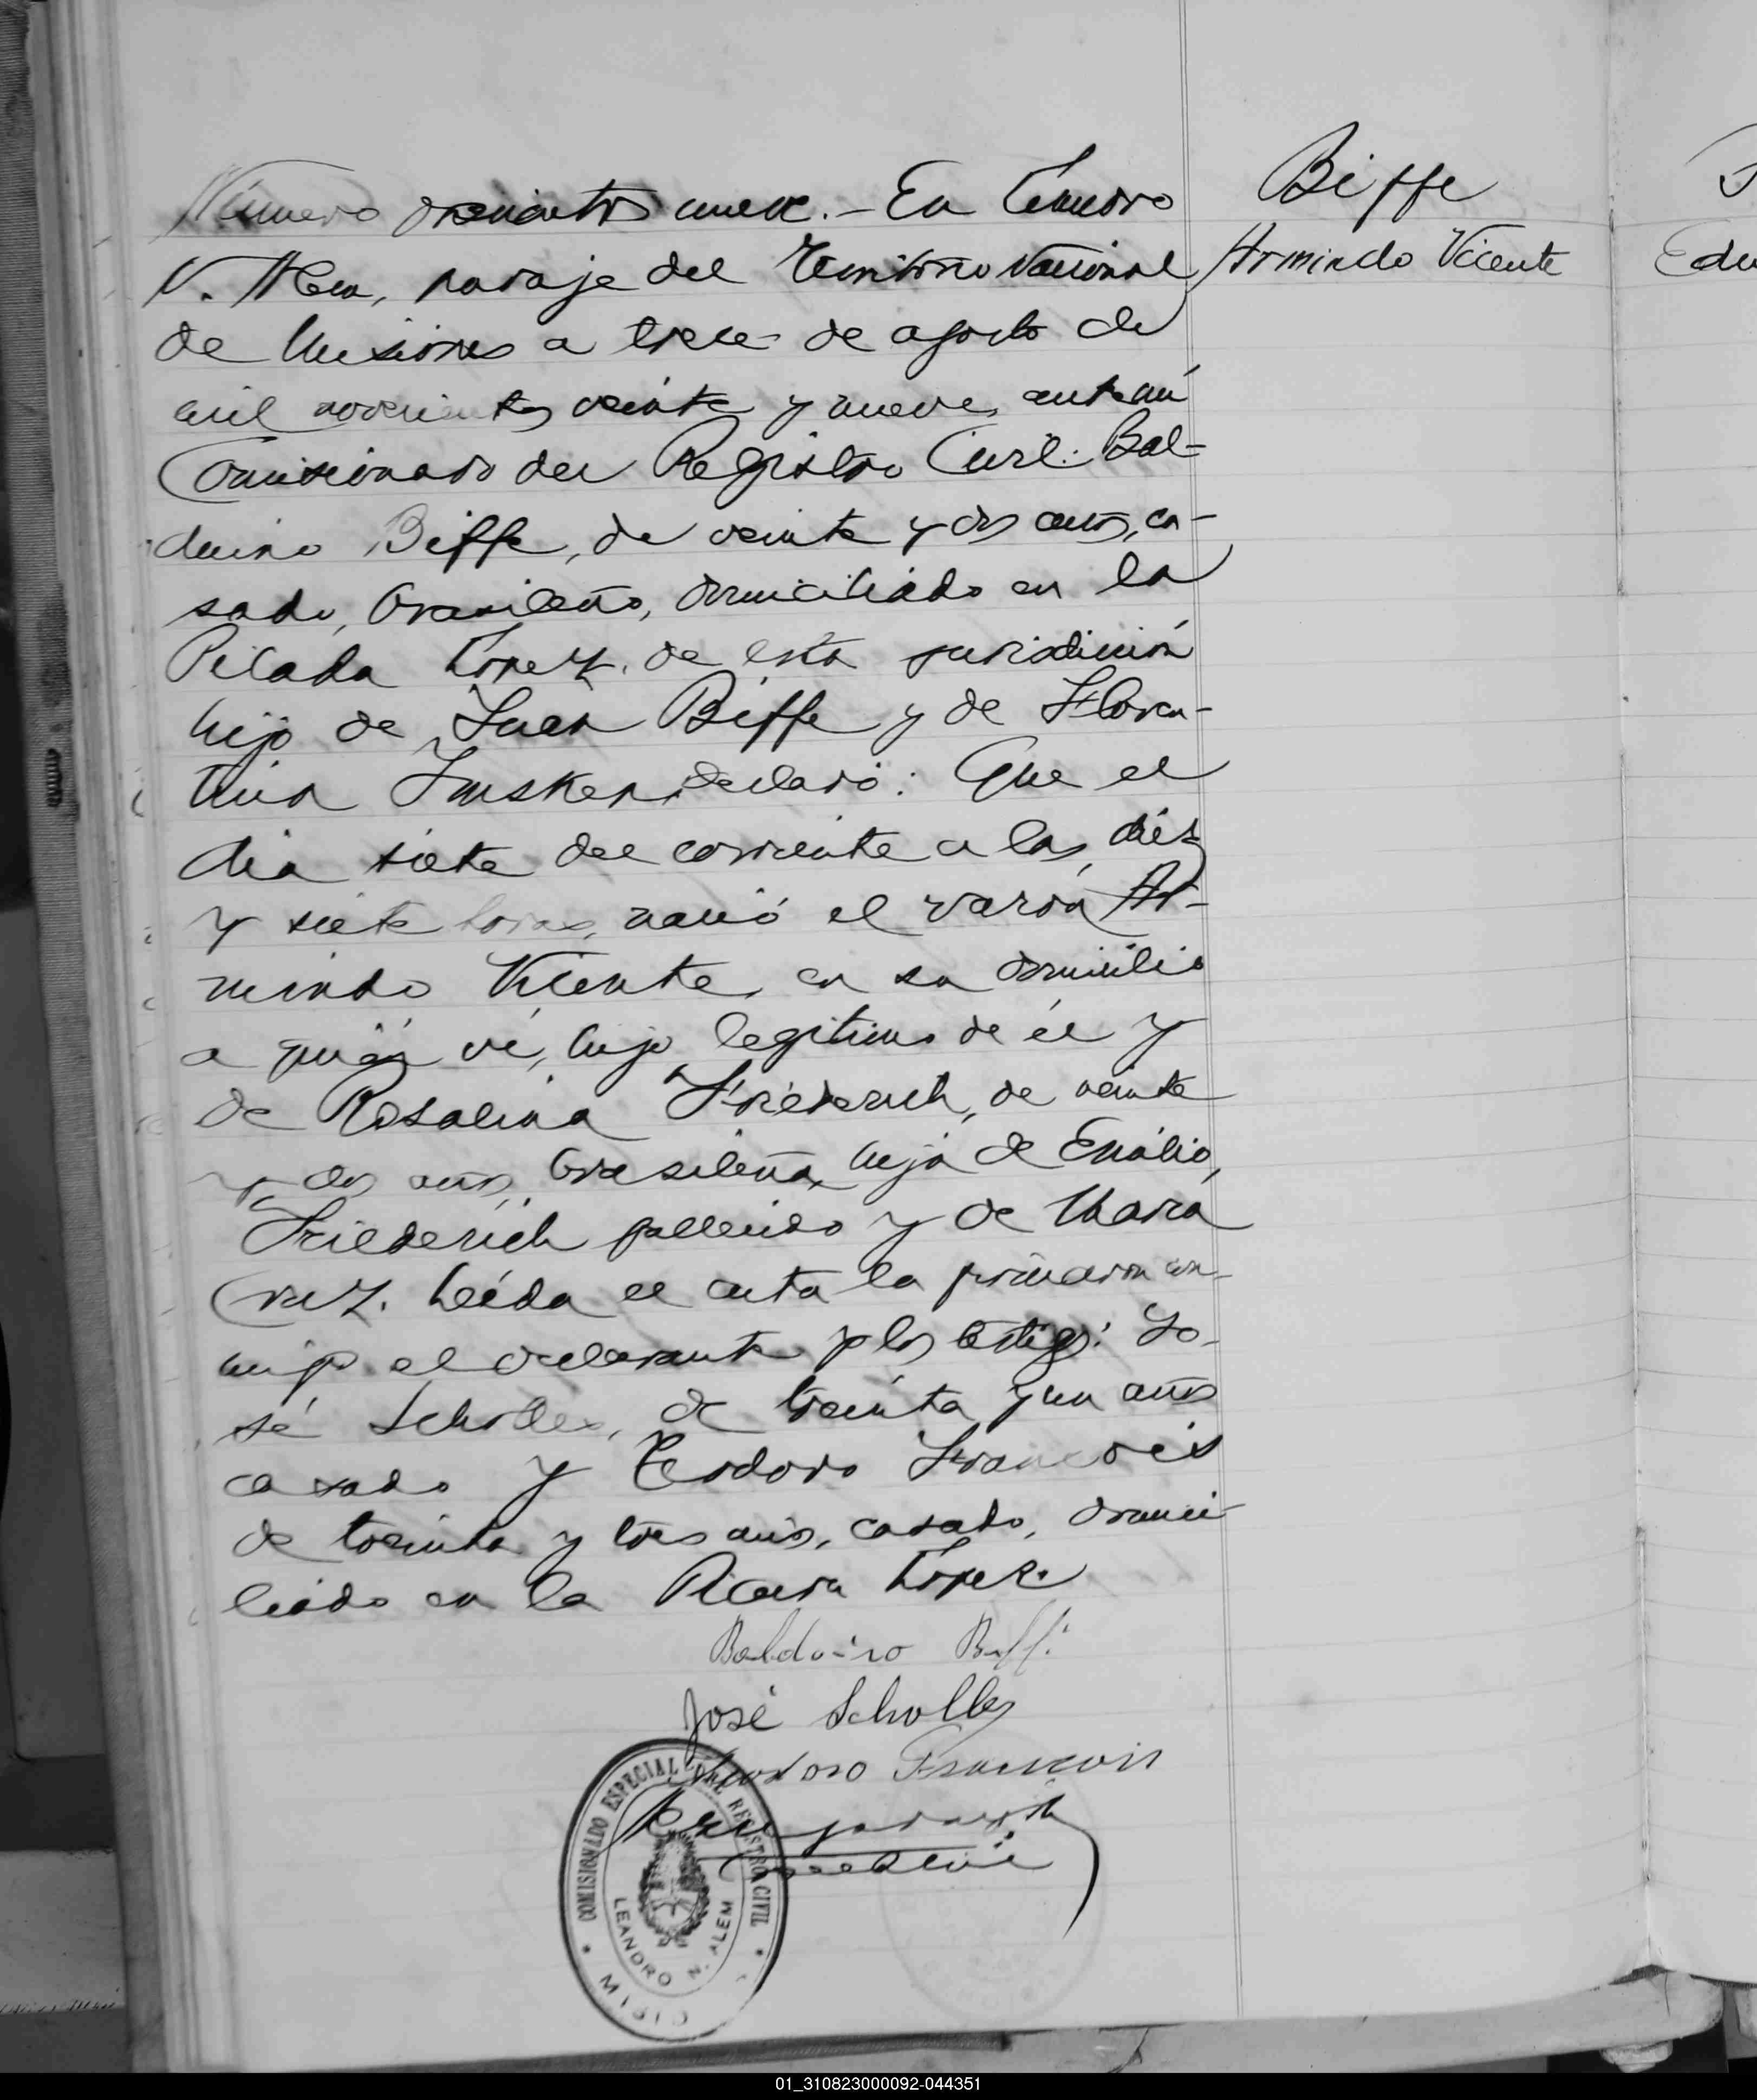 Número doscientos nueve.- En Leandro
N. Alem, paraje del Territorio Nacional
de Misiones a trece de agosto de
mil novecientos veinte y nueve, ante mi
Comisionado del Registro Civil: Bal-
duino Biffe, de veinte y dos años, ca-
sado, brasileño, domiciliado en la
Picada Lopez, de esta jurisdicción
hijo de Juan Biffe y de Floren-
tina declaró: Que el
dia siete del corriente a las diéz
y siete horas, nació el varón Ar-
mindo Vicente, en su domicilio
a quién vé, hijo legitimo de él y
de Rosalina Friederich, de veinte
y dos años, brasileña, hija de Emilio,
Friederich fallecido y de Maria
Cruz. Leída el acta la firmaron con-
migo el declarante y los testigos: Jo-
sé Scholles, de treinta y un años
casado y Teodoro Francois
de treinta y tres años, casado, domici-
liado en la Picada Lopez.
Baldoino Biffi
José Scholles
Theodoro Francois
COMISIONADO ESPECIAL DEL REGISTRO CIVIL
LEANDRO N. ALEM
Biffe
Armindo Vicente
Edu
01_310823000092-044351